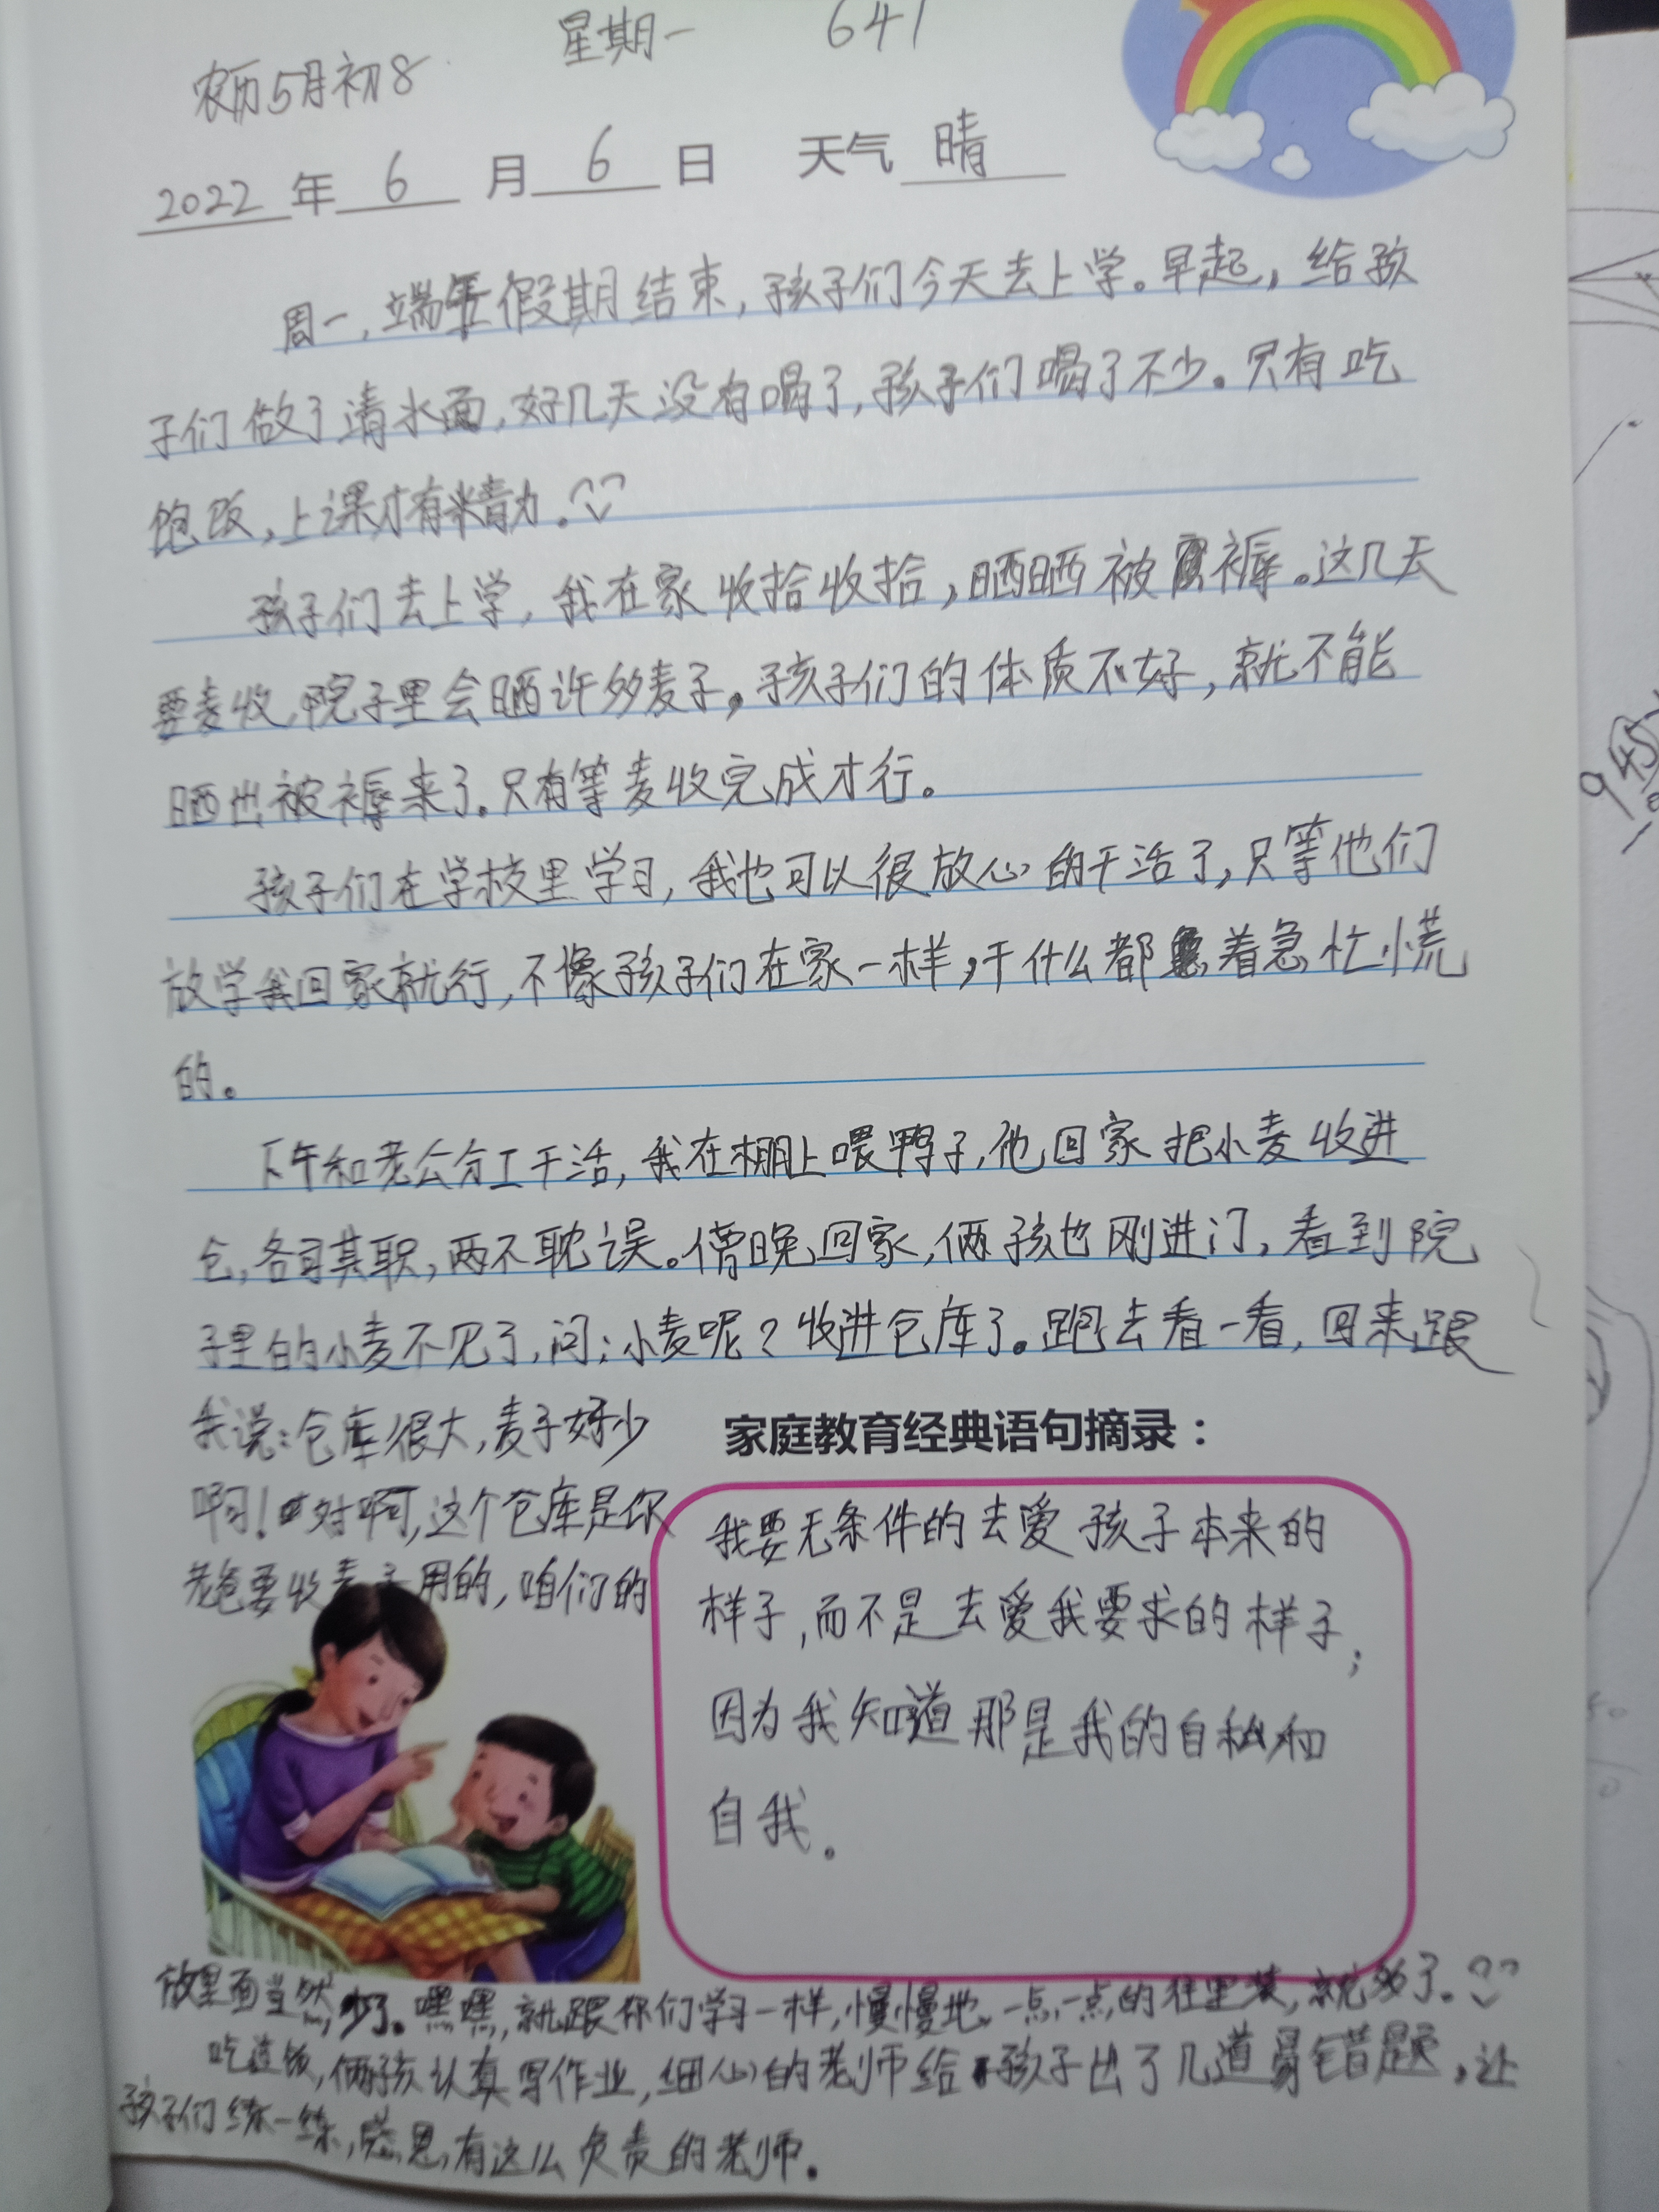 星期一 641
农历5月初8
2022年6月6日 天气晴
周一,端午假期结束,孩子们今天去上学。早起,给孩
子们做了清水面,好几天没有喝了,孩子们喝了不少。只有吃
饱饭,上课才有精力。
孩子们去上学,我在家收拾收拾,晒晒被褥。这几天
要麦收,院子里会晒许多麦子。孩子们的体质不好,就不能
晒出被褥来了。只有等麦收完成才行。
孩子们在学校里学习,我也可以很放心的干活了,只等他们
放学我回家就行,不像孩子们在家一样,干什么都着急忙慌
的。
下午和老公分工干活,我在棚上喂鸭子,他回家把小麦收进
仓,各司其职,两不耽误。傍晚回家,俩孩也刚进门,看到院
子里的小麦不见了,问:小麦呢?收进仓库了。跑去看一看,回来跟
我说:仓库很大,麦子好少
啊!对啊,这个仓库是你
老爸要收麦子用的,咱们的
家庭教育经典语句摘录:
我要无条件的去爱孩子本来的
样子,而不是去爱我要求的样子;
因为我知道那是我的自私和
自我。
放里面当然少了。嘿嘿,就跟你们学习一样,慢慢地,一点一点的往里装,就多了。
吃过饭,俩孩认真写作业,细心的老师给孩子出了几道易错题,让
孩子们练一练,感恩,有这么负责的老师。